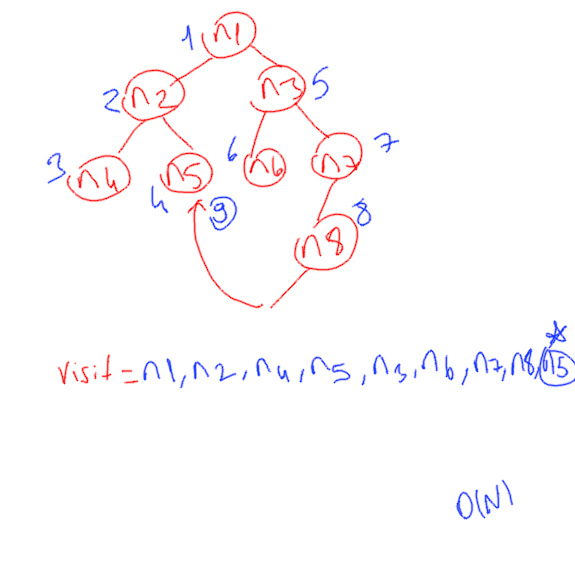 1 n1
2 n2 n3 5
3 n4 4 n5 6 n6 n7 7
9 n8 8
visit = n1, n2, n4, n5, n3, n6, n7, n8, n5
O(N)